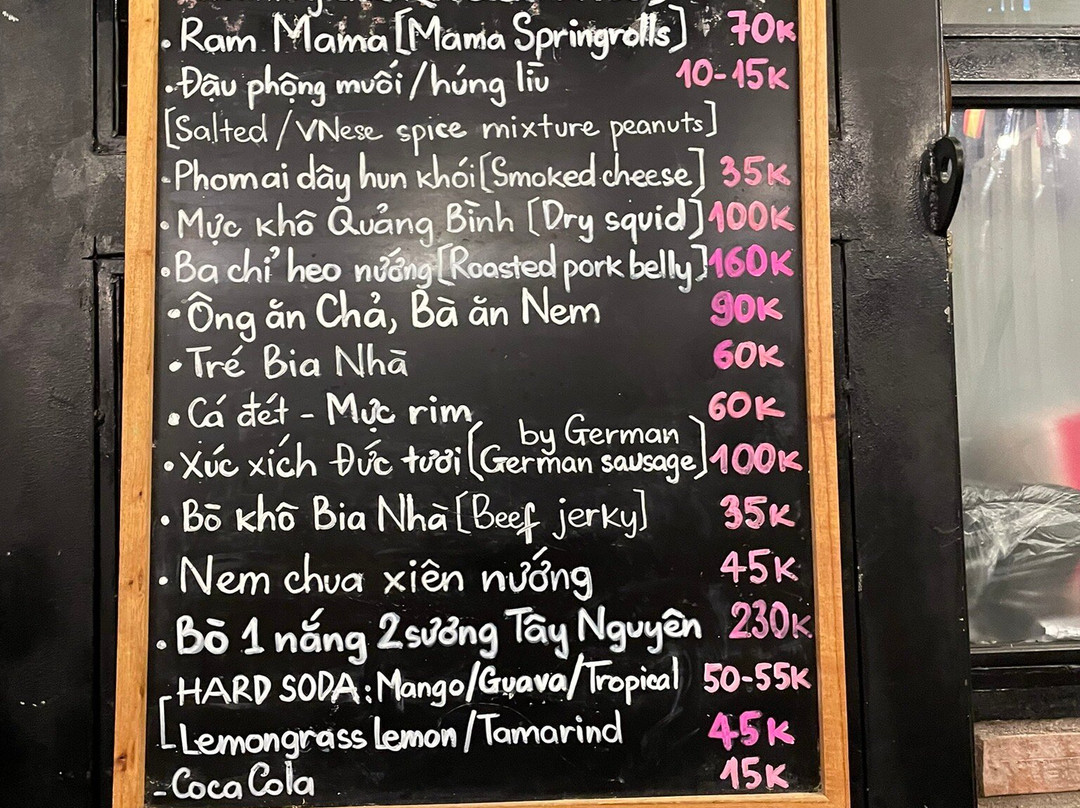 • Ram Mama [Mama Springrolls] 70K
• Đậu phộng muối / húng lìu 10-15K
[Salted / VNese spice mixture peanuts]
- Phomai dây hun khói [Smoked cheese] 35K
• Mực khô Quảng Bình [Dry squid] 100K
• Ba chỉ heo nướng [Roasted pork belly] 160K
• Ông ăn Chả, Bà ăn Nem 90K
• Tré Bia Nhà 60K
• Cá đét - Mực rim 60K
• Xúc xích Đức tươi [by German German sausage] 100K
• Bò khô Bia Nhà [Beef jerky] 35K
• Nem chua xiên nướng 45K
• Bò 1 nắng 2 sương Tây Nguyên 230K
HARD SODA: Mango/Guava/Tropical 50-55K
Lemongrass Lemon/Tamarind 45K
- Coca Cola 15K